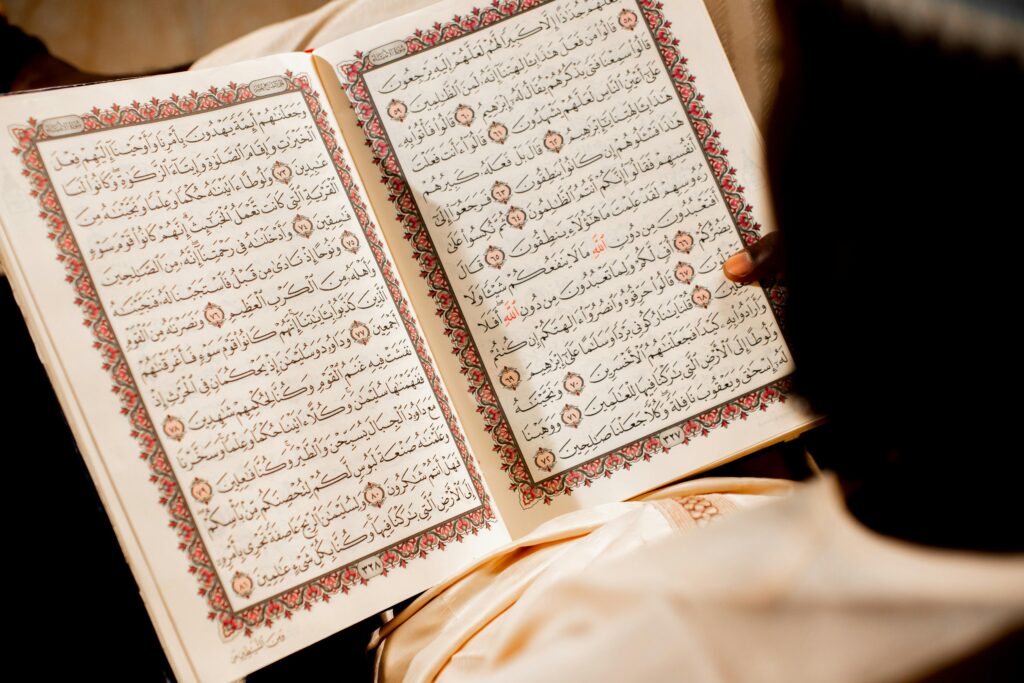 سورة الأنبياء
فَجَعَلَهُمْ جُذَٰذًا إِلَّا كَبِيرًا لَّهُمْ لَعَلَّهُمْ إِلَيْهِ يَرْجِعُونَ ٥٨
قَالُوا۟ مَن فَعَلَ هَٰذَا بِـَٔالِهَتِنَآ إِنَّهُۥ لَمِنَ ٱلظَّٰلِمِينَ ٥٩
قَالُوا۟ سَمِعْنَا فَتًى يَذْكُرُهُمْ يُقَالُ لَهُۥٓ إِبْرَٰهِيمُ ٦٠ قَالُوا۟ فَأْتُوا۟ بِهِۦ
عَلَىٰٓ أَعْيُنِ ٱلنَّاسِ لَعَلَّهُمْ يَشْهَدُونَ ٦١ قَالُوٓا۟ ءَأَنتَ فَعَلْتَ
هَٰذَا بِـَٔالِهَتِنَا يَٰٓإِبْرَٰهِيمُ ٦٢ قَالَ بَلْ فَعَلَهُۥ كَبِيرُهُمْ
هَٰذَا فَسْـَٔلُوهُمْ إِن كَانُوا۟ يَنطِقُونَ ٦٣ فَرَجَعُوٓا۟ إِلَىٰٓ
أَنفُسِهِمْ فَقَالُوٓا۟ إِنَّكُمْ أَنتُمُ ٱلظَّٰلِمُونَ ٦٤ ثُمَّ نُكِسُوا۟ عَلَىٰ
رُءُوسِهِمْ لَقَدْ عَلِمْتَ مَا هَٰٓؤُلَآءِ يَنطِقُونَ ٦٥ قَالَ
أَفَتَعْبُدُونَ مِن دُونِ ٱللَّهِ مَا لَا يَنفَعُكُمْ شَيْـًٔا وَلَا
يَضُرُّكُمْ ٦٦ أُفٍّ لَّكُمْ وَلِمَا تَعْبُدُونَ مِن دُونِ ٱللَّهِ أَفَلَا
٦٧ قَالُوا۟ حَرِّقُوهُ وَٱنصُرُوٓا۟ ءَالِهَتَكُمْ إِن كُنتُمْ
٦٨ قُلْنَا يَٰنَارُ كُونِى بَرْدًا وَسَلَٰمًا عَلَىٰٓ إِبْرَٰهِيمَ ٦٩
وَأَرَادُوا۟ بِهِۦ كَيْدًا فَجَعَلْنَٰهُمُ ٱلْأَخْسَرِينَ ٧٠ وَنَجَّيْنَٰهُ
وَلُوطًا إِلَى ٱلْأَرْضِ ٱلَّتِى بَٰرَكْنَا فِيهَا لِلْعَٰلَمِينَ ٧١ وَوَهَبْنَا
لَهُۥٓ إِسْحَٰقَ وَيَعْقُوبَ نَافِلَةً وَكُلًّا جَعَلْنَا صَٰلِحِينَ ٧٢
٣٢٧
سورة الأنبياء
وَجَعَلْنَٰهُمْ أَئِمَّةً يَهْدُونَ بِأَمْرِنَا وَأَوْحَيْنَآ إِلَيْهِمْ فِعْلَ
ٱلْخَيْرَٰتِ وَإِقَامَ ٱلصَّلَوٰةِ وَإِيتَآءَ ٱلزَّكَوٰةِ وَكَانُوا۟ لَنَا
عَٰبِدِينَ ٧٣ وَلُوطًا ءَاتَيْنَٰهُ حُكْمًا وَعِلْمًا وَنَجَّيْنَٰهُ مِنَ
ٱلْقَرْيَةِ ٱلَّتِى كَانَت تَّعْمَلُ ٱلْخَبَٰٓئِثَ إِنَّهُمْ كَانُوا۟ قَوْمَ سَوْءٍ
فَٰسِقِينَ ٧٤ وَأَدْخَلْنَٰهُ فِى رَحْمَتِنَآ إِنَّهُۥ مِنَ ٱلصَّٰلِحِينَ
٧٥ وَنُوحًا إِذْ نَادَىٰ مِن قَبْلُ فَٱسْتَجَبْنَا لَهُۥ فَنَجَّيْنَٰهُ
وَأَهْلَهُۥ مِنَ ٱلْكَرْبِ ٱلْعَظِيمِ ٧٦ وَنَصَرْنَٰهُ مِنَ ٱلْقَوْمِ
ٱلَّذِينَ كَذَّبُوا۟ بِـَٔايَٰتِنَآ إِنَّهُمْ كَانُوا۟ قَوْمَ سَوْءٍ فَأَغْرَقْنَٰهُمْ
أَجْمَعِينَ ٧٧ وَدَاوُۥدَ وَسُلَيْمَٰنَ إِذْ يَحْكُمَانِ فِى ٱلْحَرْثِ إِذْ
نَفَشَتْ فِيهِ غَنَمُ ٱلْقَوْمِ وَكُنَّا لِحُكْمِهِمْ شَٰهِدِينَ ٧٨
فَفَهَّمْنَٰهَا سُلَيْمَٰنَ وَكُلًّا ءَاتَيْنَا حُكْمًا وَعِلْمًا وَسَخَّرْنَا
مَعَ دَاوُۥدَ ٱلْجِبَالَ يُسَبِّحْنَ وَٱلطَّيْرَ وَكُنَّا فَٰعِلِينَ ٧٩
وَعَلَّمْنَٰهُ صَنْعَةَ لَبُوسٍ لَّكُمْ لِتُحْصِنَكُم مِّنۢ بَأْسِكُمْ
فَهَلْ أَنتُمْ شَٰكِرُونَ ٨٠ وَلِسُلَيْمَٰنَ ٱلرِّيحَ عَاصِفَةً تَجْرِى بِأَمْرِهِۦٓ
إِلَى ٱلْأَرْضِ ٱلَّتِى بَٰرَكْنَا فِيهَا وَكُنَّا بِكُلِّ شَىْءٍ عَٰلِمِينَ ٨١
٣٢٨
وَمِنَ ٱلشَّيَٰطِينِ